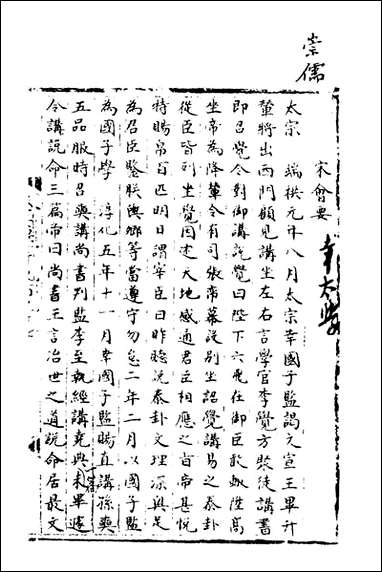 崇儒
宋會要
幸太學
太宗 端拱元年八月太宗幸國子監謁文宣王畢升
輦將出西門顧見講坐左右言學官李覺方聚徒講書
即召覺令對御講說覺曰陛下六飛在御臣敢輒陞高
坐帝為降輦令有司張帟幕設別坐詔覺講易之泰卦
從臣皆列坐覺因述天地感通君臣相應之旨帝甚悅
特賜帛百匹明日謂宰臣曰昨聽說泰卦文理深奧足
為君臣鑒朕與卿等當遵守勿怠二年二月以國子監
為國子學 淳化五年十一月幸國子監賜直講孫奭
五品服時召奭講尚書判監李至執經講堯典未畢遽
令講說命三篇帝曰尚書王言治世之道說命居最文